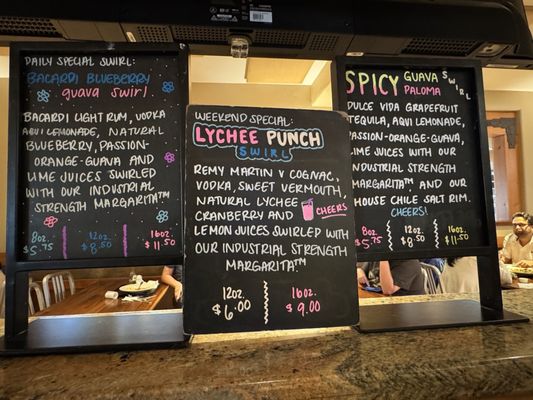 DAILY SPECIAL SWIRL:
BACARDI BLUEBERRY
guava swirl
BACARDI LIGHT RUM, VODKA
AQUI LEMONADE, NATURAL
BLUEBERRY, PASSION-
ORANGE-GUAVA AND
LIME JUICES SWIRLED
WITH OUR INDUSTRIAL
STRENGTH
MARGARITA™
8oz. 12oz. 16oz.
$5.75 $8.50 $11.50
WEEKEND SPECIAL:
LYCHEE PUNCH
SWIRL
REMY MARTIN V COGNAC,
VODKA, SWEET VERMOUTH,
NATURAL LYCHEE
CRANBERRY AND CHEERS
LEMON JUICES SWIRLED WITH
OUR INDUSTRIAL STRENGTH
MARGARITA.™
12oz. 16oz.
$6.00 $9.00
SPICY GUAVA SWIRL
PALOMA
DULCE VIDA GRAPEFRUIT
TEQUILA, AQUI LEMONADE,
PASSION-ORANGE-GUAVA,
LIME JUICES WITH OUR
INDUSTRIAL STRENGTH
MARGARITA™ AND OUR
HOUSE CHILE SALT RIM.
CHEERS!
8oz. 12oz. 16oz.
$5.75 $8.50 $11.50